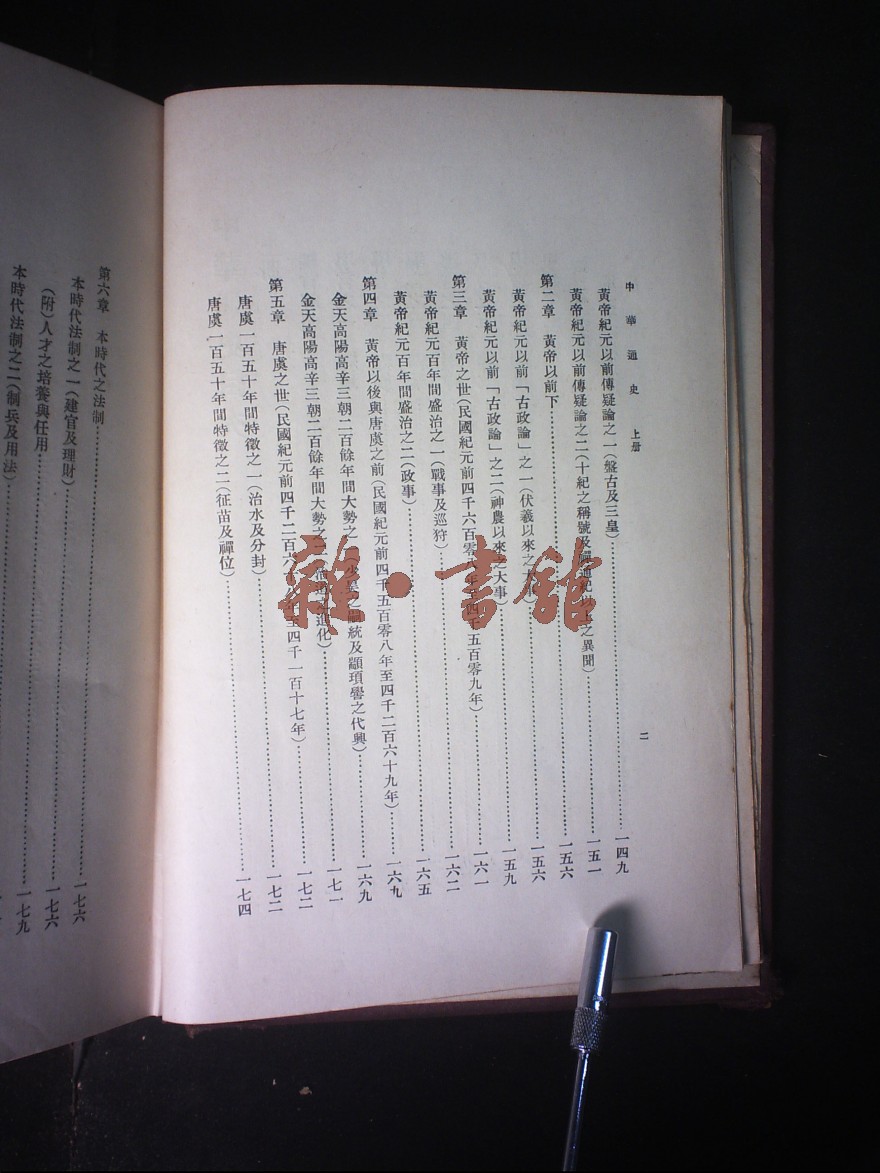 中華通史 上册
二
黃帝紀元以前傳疑論之一(盤古及三皇)……一四九
黃帝紀元以前傳疑論之二(十紀之稱號及禪通紀以上之異聞)……一五一
第二章 黃帝以前下……一五六
黃帝紀元以前「古政論」之一(伏羲以來之大事)……一五六
黃帝紀元以前「古政論」之二(神農以來之大事)……一五九
第三章 黃帝之世(民國紀元前四千六百零八年至四千五百零九年)……一六一
黃帝紀元百年間盛治之一(戰事及巡狩)……一六二
黃帝紀元百年間盛治之二(政事)……一六五
第四章 黃帝以後與唐虞之前(民國紀元前四千五百零八年至四千二百六十九年)……一六九
金天高陽高辛三朝二百餘年間大勢之一(少昊之嗣統及顓頊嚳之代興)……一六九
金天高陽高辛三朝二百餘年間大勢之 進化)……一七一
第五章 唐虞之世(民國紀元前四千二百六十八年至四千一百十七年)……一七二
唐虞一百五十年間特徵之一(治水及分封)……一七二
唐虞一百五十年間特徵之二(征苗及禪位)……一七四
第六章 本時代之法制……一七六
本時代法制之一(建官及理財)……一七六
(附)人才之培養與任用
本時代法制之二(制兵及用法)……一七九
雜·書館